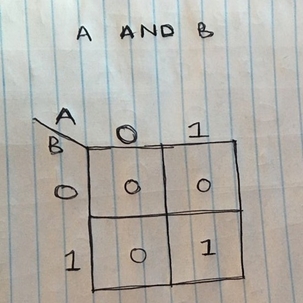 A AND B
A
B
0 1
0 0 0
1 0 1